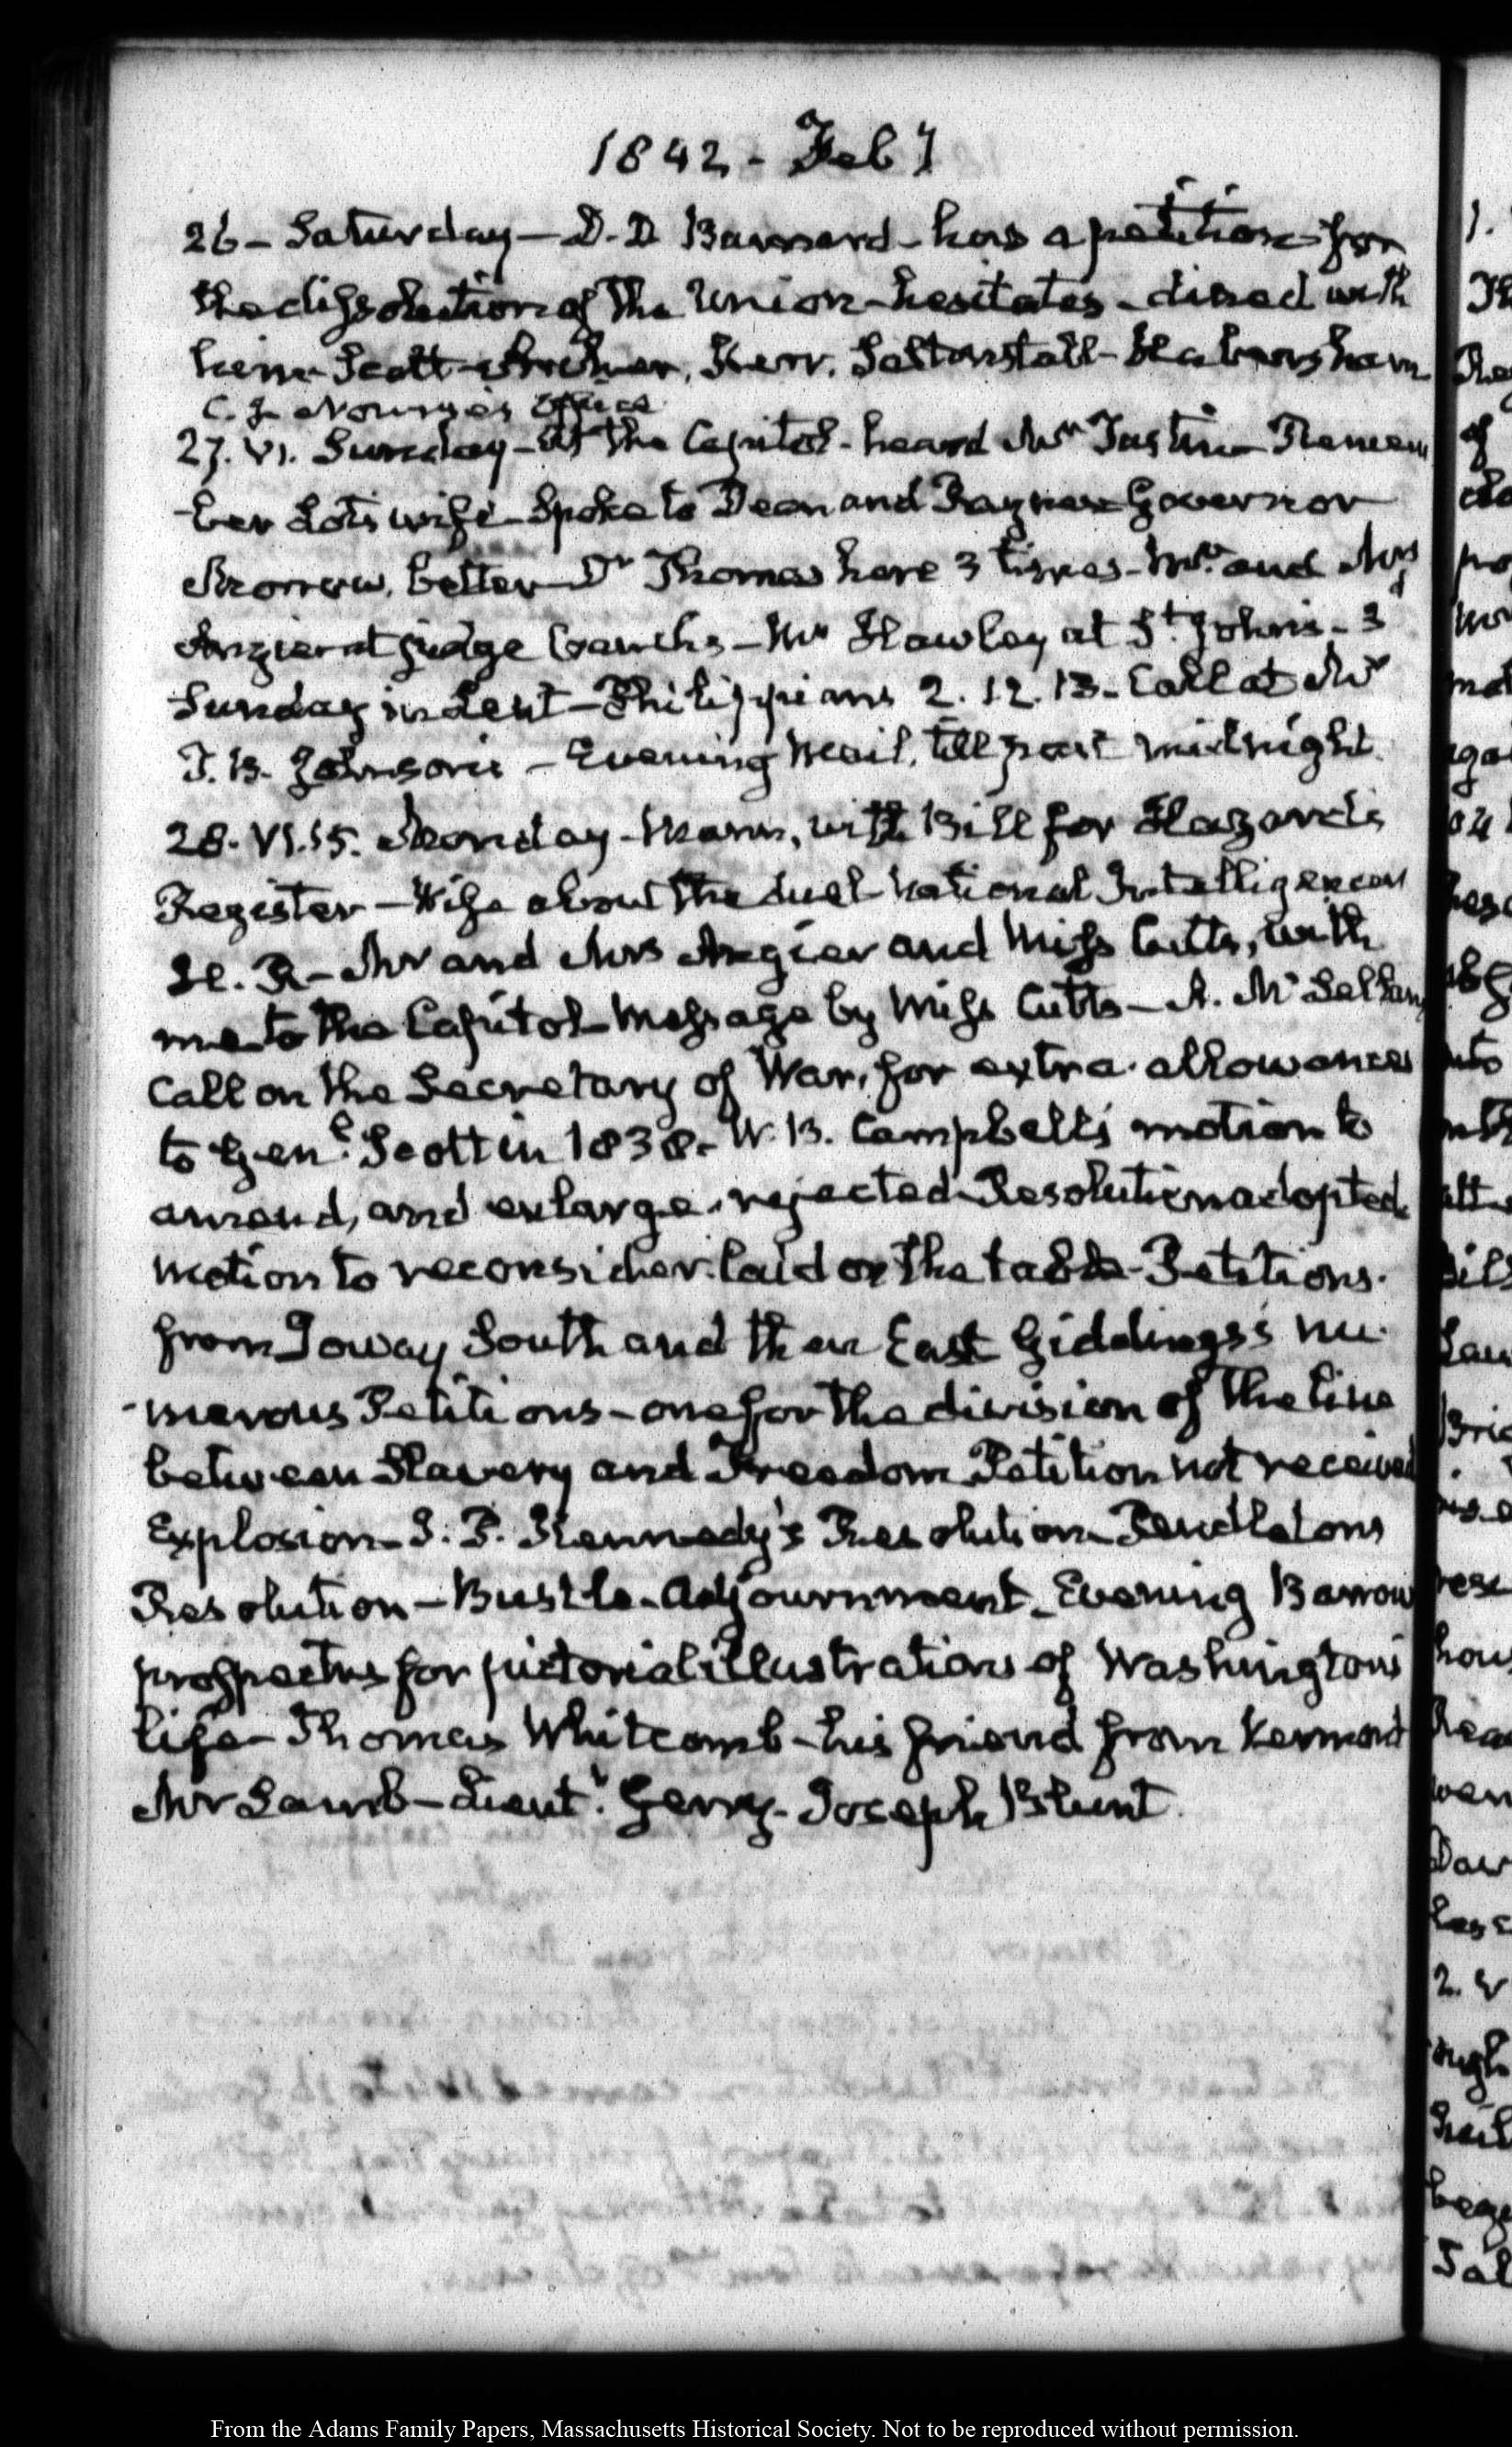 1842 - Feby
26 - Saturday - D. D Barnard - has a petition for
the dissolution of the Union - hesitates - dined with
him - Scott - Archer, Kerr. Saltonstall - Habersham
C. J. Nourse's Office
27. VI. Sunday - At the Capitol - heard Mr Tustin - Remem
ber Lot's wife - Spoke to Dean and Rayner Governor
Morrow, better - Dr Thomas here 3 times - Mr and Mrs
Angier at judge Cranch's - Mr Hawley at St John's - 3d
Sunday in Lent - Philippians 2. 12. 13 - Call at Mr
J. B. Johnson's - Evening Mail, till past midnight.
28. VI.15. Monday - Mann, with Bill for Hazard's
Register - Wise about the duel - National Intelligencer
H. R - Mr and Mrs Angier and Miss Cutts, with
me to the Capitol - Message by Miss Cutts - A. McLellan
Call on the Secretary of War, for extra allowances
to Genl. Scott in 1838 - W. B. Campbell's motion to
amend, and enlarge, rejected - Resolution adopted
motion to reconsider laid on the table - Petitions.
from Ioway South and then East Giddings's nu-
-merous Petitions - one for the division of the line
between Slavery and Freedom Petition not received
Explosion - J. P. Kennedy's Resolution - Pendleton's
Resolution - Bustle - Adjournment - Evening Barrow
prospectus for pictorial illustrations of Washington's
life - Thomas Whitcomb - his friend from Vermont
Mr Lamb - Lieutt. Gerry - Joseph Blunt.
From the Adams Family Papers, Massachusetts Historical Society. Not to be reproduced without permission.